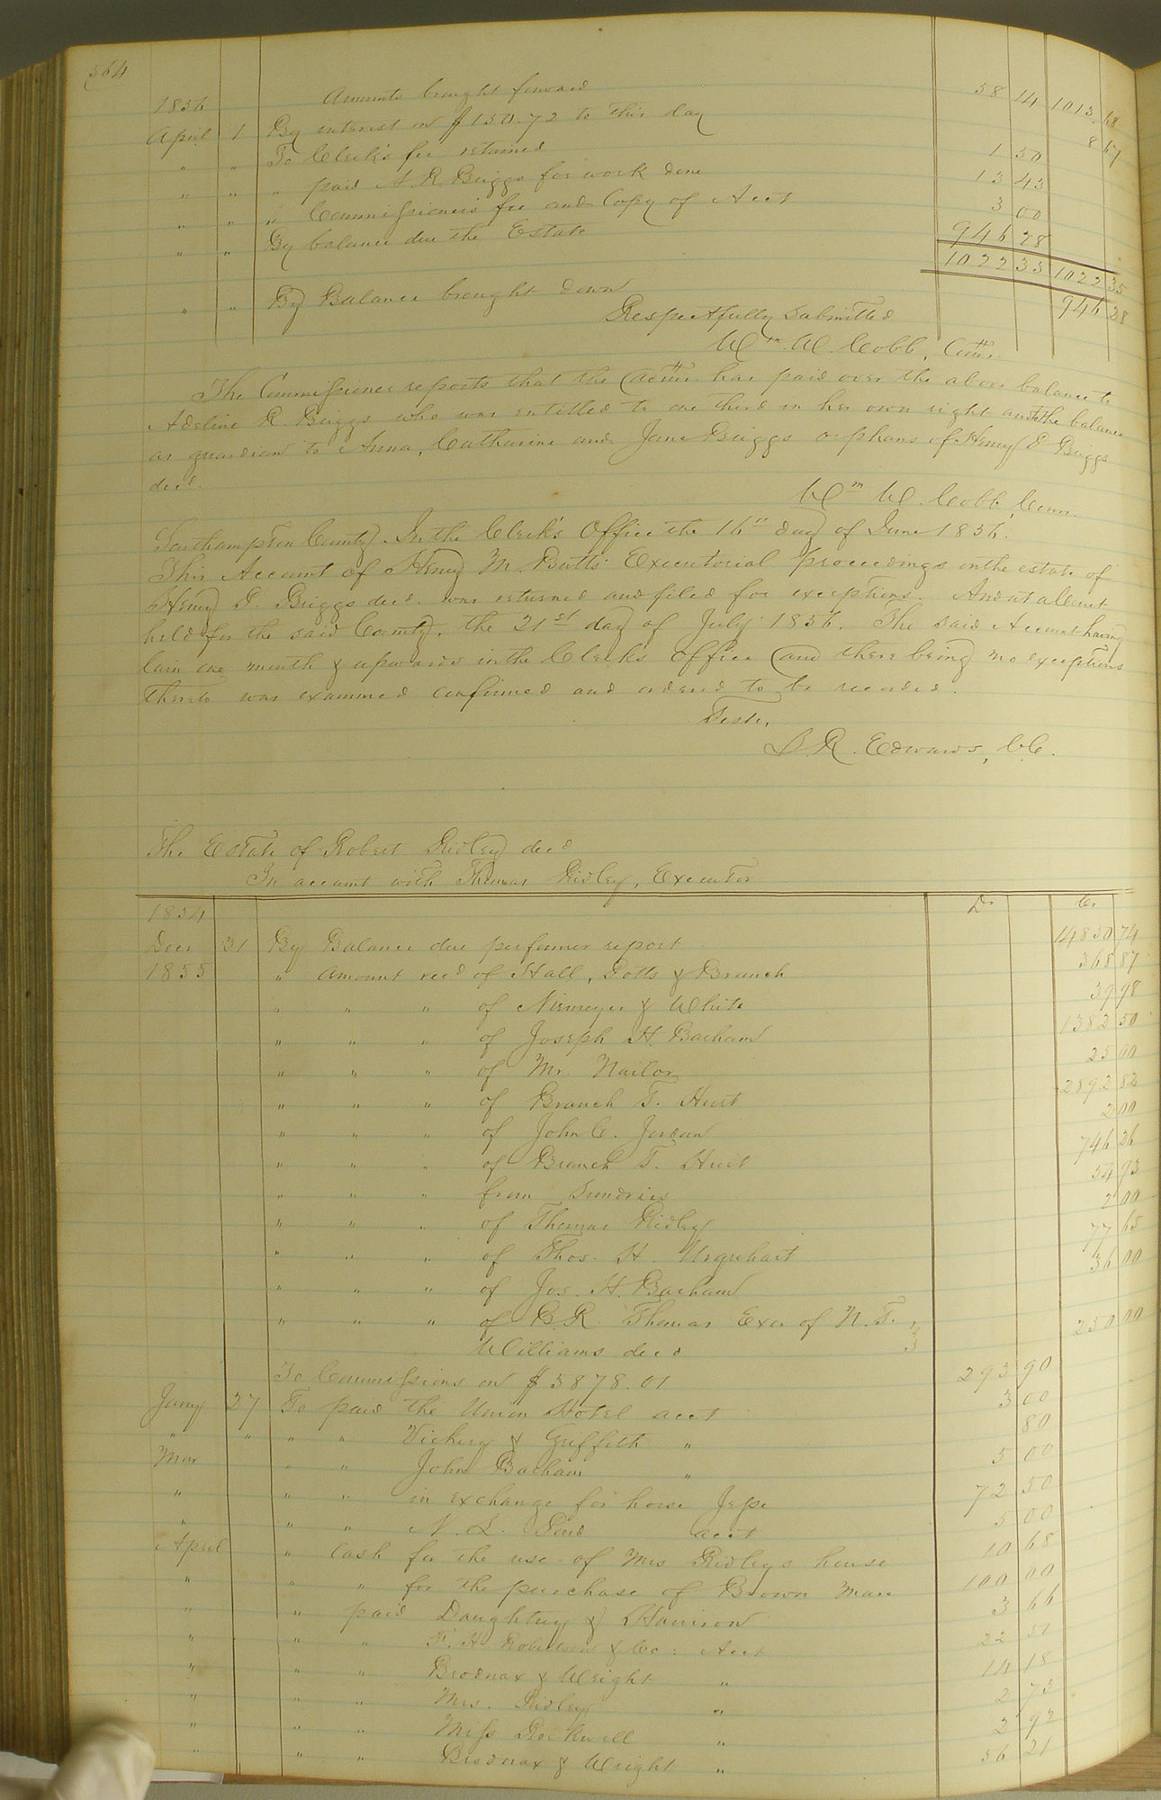 564
Amounts brought forward 58 14 1013 68
1856
April 1 By interest on $130.72 to this day 8 67
" " To Clerk's fee returned 1 50
" " " paid A. R. Briggs for work done 13 43
" " " Commissioner's fee and Copy of Acct 3 00
" " By balance due the Estate 946 28
1022 35 1022 35
" " By Balance brought down 946 28
Respectfully Submitted
Wm. W. Cobb, Comr.
The Commissioner reports that the has paid over the above balance to
Adeline R. Briggs who was entitled to one third in her own right and the balance
as guardian to Anna, Catharine and Jane Briggs orphans of Henry D Briggs
decd.
Wm W. Cobb, Comr.
Southampton County. In the Clerk's Office the 16th day of June 1856.
This Account of Henry M. Butts' Executorial proceedings on the estate of
Henry D. Briggs decd. was returned and filed for exceptions. And at a Court
held for the said County, the 21st day of July 1856. The said Account having
lain one month & upwards in the Clerk's office and there being no exceptions
thereto was examined confirmed and ordered to be recorded.
Teste,
L. R. Edwards, C.C.
The Estate of Robert Ridley decd
In account with Thomas Ridley, Executor
1854 Dr Cr
Decr 31 By Balance due per former report 14830 74
1855 " Amount recd of Hall, Potts & Branch 368 87
" " " of Niemeyer & White 39 98
" " " of Joseph H. Barham 1382 50
" " " of Mr Nailor 25 00
" " " of Branch T. Hurt 2892 82
" " " of John C. Jordan 2 00
" " " of Branch T. Hurt 746 26
" " " from Sundries 54 93
" " " of Thomas Ridley 2 00
" " " of Thos. H. Urquhart 77 65
" " " of Jos. H. Barham 36 00
" " " of B. R. Thomas Exr of N. T.
Williams decd 250 00
To Commissions on $5878.01 293 90
Jany 27 To paid the Union Hotel acct 3 00
" " " " Vickery & Griffeth " 80
Mar " " John Barham " 5 00
" " " in exchange for horse Jesse 72 50
" " " N. L. acct 5 00
April " Cash for the use of Mrs Ridley's house 10 68
" " " for the purchase of Brown Mare 100 00
" " paid Daughtrey & Harrison 3 66
" " " F. H. Robertson & Co: Acct 22 51
" " " Brodnax & Wright " 14 18
" " " Mrs. Ridley " 2 73
" " " Miss Rockwell " 2 92
" " " Brodnax & Wright " 56 21